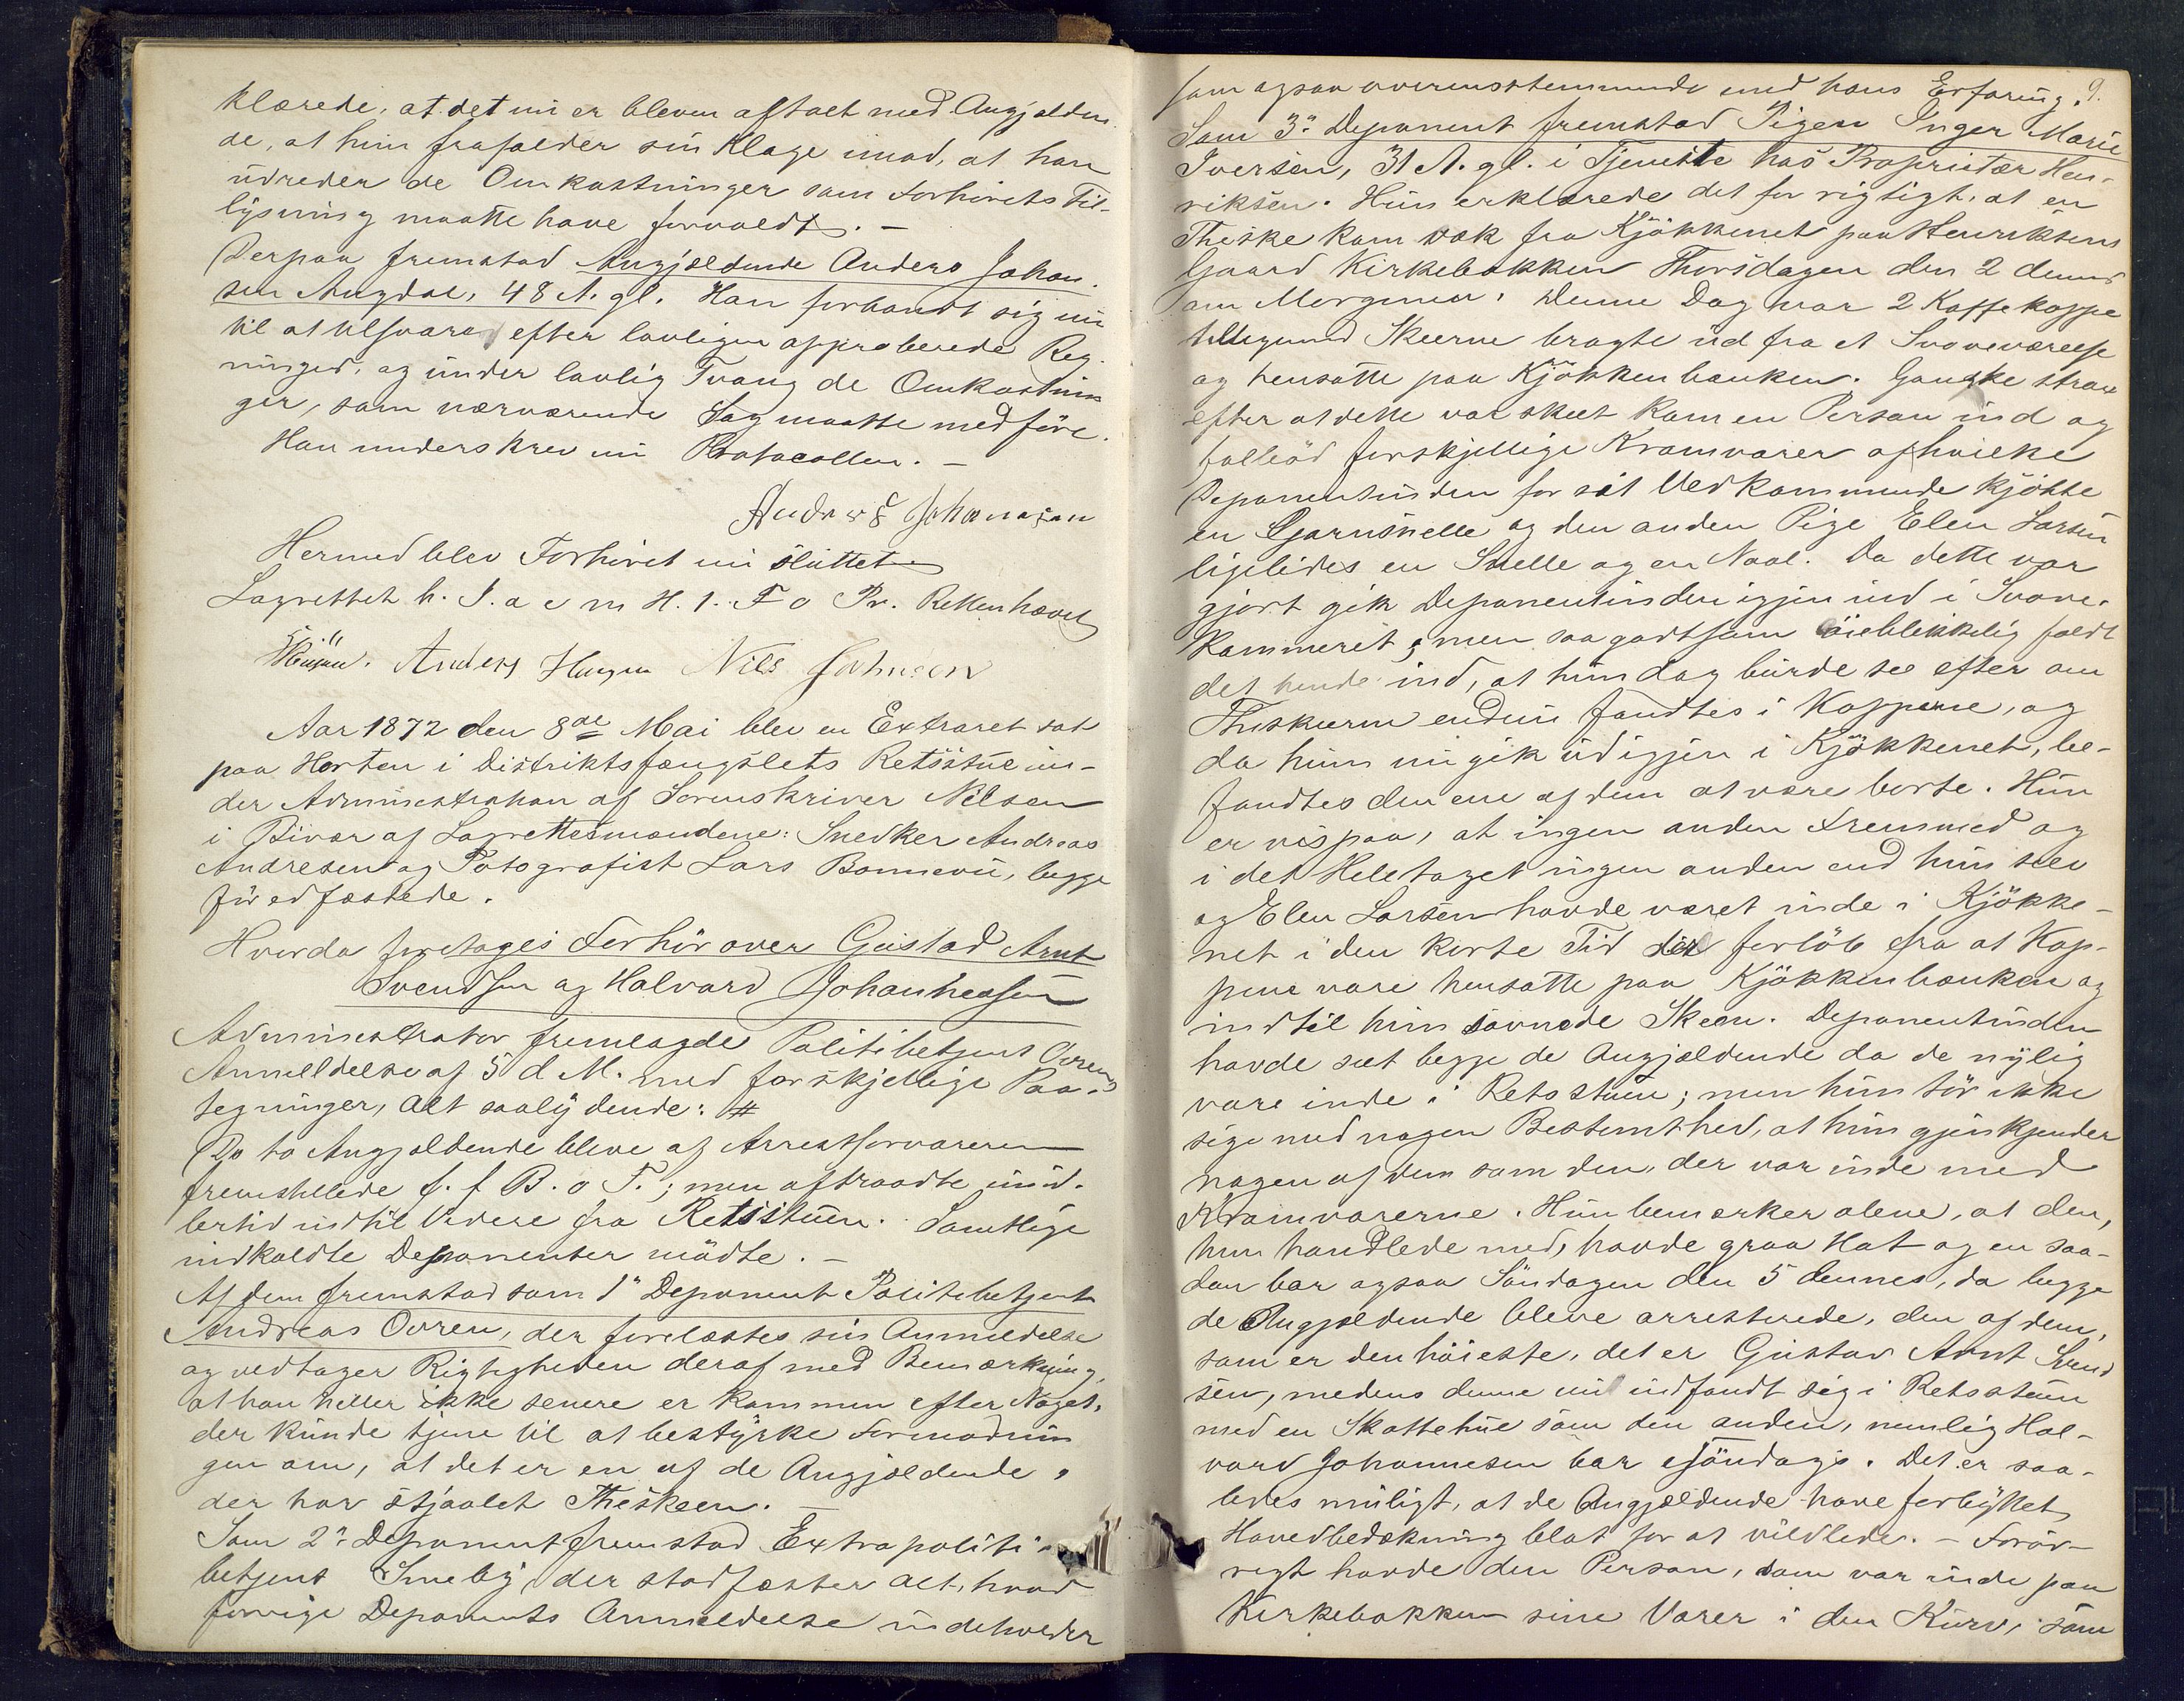 klærede, at det nu er bleven aftalt med Angjælden
de, at hun frafalder sin Klage imod, at han
udreder de Omkostninger som Forhørets Til-
lysning maatte have forvoldt. –
Derpaa fremstod Angjældende Anders Johan-
sen Augdal, 48 A. gl. Han forbandt sig nu
til at tilsvare efter lovligen approberede Reg-
ninger, og under lovlig Tvang de Omkostnin
ger, som nærværende Sag maatte medføre.
Han underskrev nu Protocollen. –
Anders Johansen
Hermed blev Forhøret nu sluttet
Lagrettet h. I. a e m H. 1. F o Pr. Retten hævet
Anders Haugen Nils Johnsen
Aar 1872 den 8de Mai blev en Extraret sat
paa Horten i Distriktsfængslets Retsstue un-
der Administration af Sorenskriver Nilsen
i Bivær af Lagrettesmændene: Snedker Andreas
Andresen og Fotografist Lars Bonnevie, begge
før edfæstede.
Hvorda foretoges Forhør over Gustad Arnt
Svendsen og Halvard Johannessen
Administrator fremlagde Politibetjent Ovrens
Anmelldelse af 5 d M. med forskjellige Paa-
tegninger, alt saalydende: #
De to Angjældende bleve af Arrestforvareren
fremstillede f. f B. o T.; men aftraadte imid-
lertid indtil Videre fra Retsstuen. Samtlige
indkaldte Deponenter mødte. –
Af dem fremstod som 1ste Deponent Politibetjent
Andreas Ovren, der forelæstes sin Anmeldelse
og vedtager Rigtigheden deraf med Bemærkning,
at han heller ikke senere er kommen efter Noget,
der kunde tjene til at bestyrke Formodnin
gen om, at det er en af de Angjældende,
der har stjaalet Theskeen. –
Som 2n Deponent fremstod Extrapoliti-
betjent Smeby, der stadfæster alt, hvad
forrige Deponents Anmeldelse indeholder
9.
som ogsaa overensstemmende med hans Erfaring.
Som 3n Deponent fremstod Pigen Inger Marie
Iversen, 31 A. gl. i Tjeneste hos Proprietær Hen-
riksen. Hun erklærede det for rigtigt, at en
Theske kom væk fra Kjøkkenet paa Henriksens
Gaard Kirkebakken Thorsdagen den 2 dennes
om Morgenen. Denne Dag var 2 Kaffekoppe
tilligemed Skeerne bragte ud fra et Soveværelse
og hensatte paa Kjøkkenbænken. Ganske strax
efter at dette var skeet kom en Person ind og
falbød forskjellige Kramvarer af hvilke
Deponentinden for sit Vedkommende kjøbte
en Garnsnelle og den anden Pige Elen Larsen
ligeledes en Snelle og en Naal. Da dette var
gjort gik Deponentinden igjen ind i Sove-
kammeret; men saagodtsom øieblikkelig faldt
det hende ind, at hun dog burde see efter om
Theskeerne endnu fandtes i Koppene, og
da hun nu gik ud igjen i Kjøkkenet, be-
fandtes den ene af dem at være borte. Hun
er vis paa, at ingen anden Fremmed og
i det Heletaget ingen anden end hun selv
og Elen Larsen havde været inde i Kjøkke-
net i den korte Tid der forløb fra at Kop-
pene vare hensatte paa Kjøkkenbænken og
indtil hun savnede Skeen. Deponentinden
havde seet begge de Angjældende da de nylig
vare inde i Retsstuen; men hun tør ikke
sige med nogen Bestemthed, at hun gjenkjender
nogen af dem som den, der var inde med
Kramvarerne. Hun bemærker alene, at den,
hun handlede med, havde graa Hat og en saa-
dan bar ogsaa Søndagen den 5 dennes, da begge
de Angjældende bleve arresterede, den af dem,
som er den høieste, det er Gustav Arnt Svend
sen, medens denne nu indfandt sig i Retsstuen
med en Skottehue som den anden, nemlig Hal-
vard Johannesen bar isøndags. Det er saa-
ledes muligt, at de Angjældende have forbyttet
Hovedbedækning blot for at vildlede. – Forøv-
rigt havde den Person, som var inde paa
Kirkebakken sine Varer i den Kurv, som